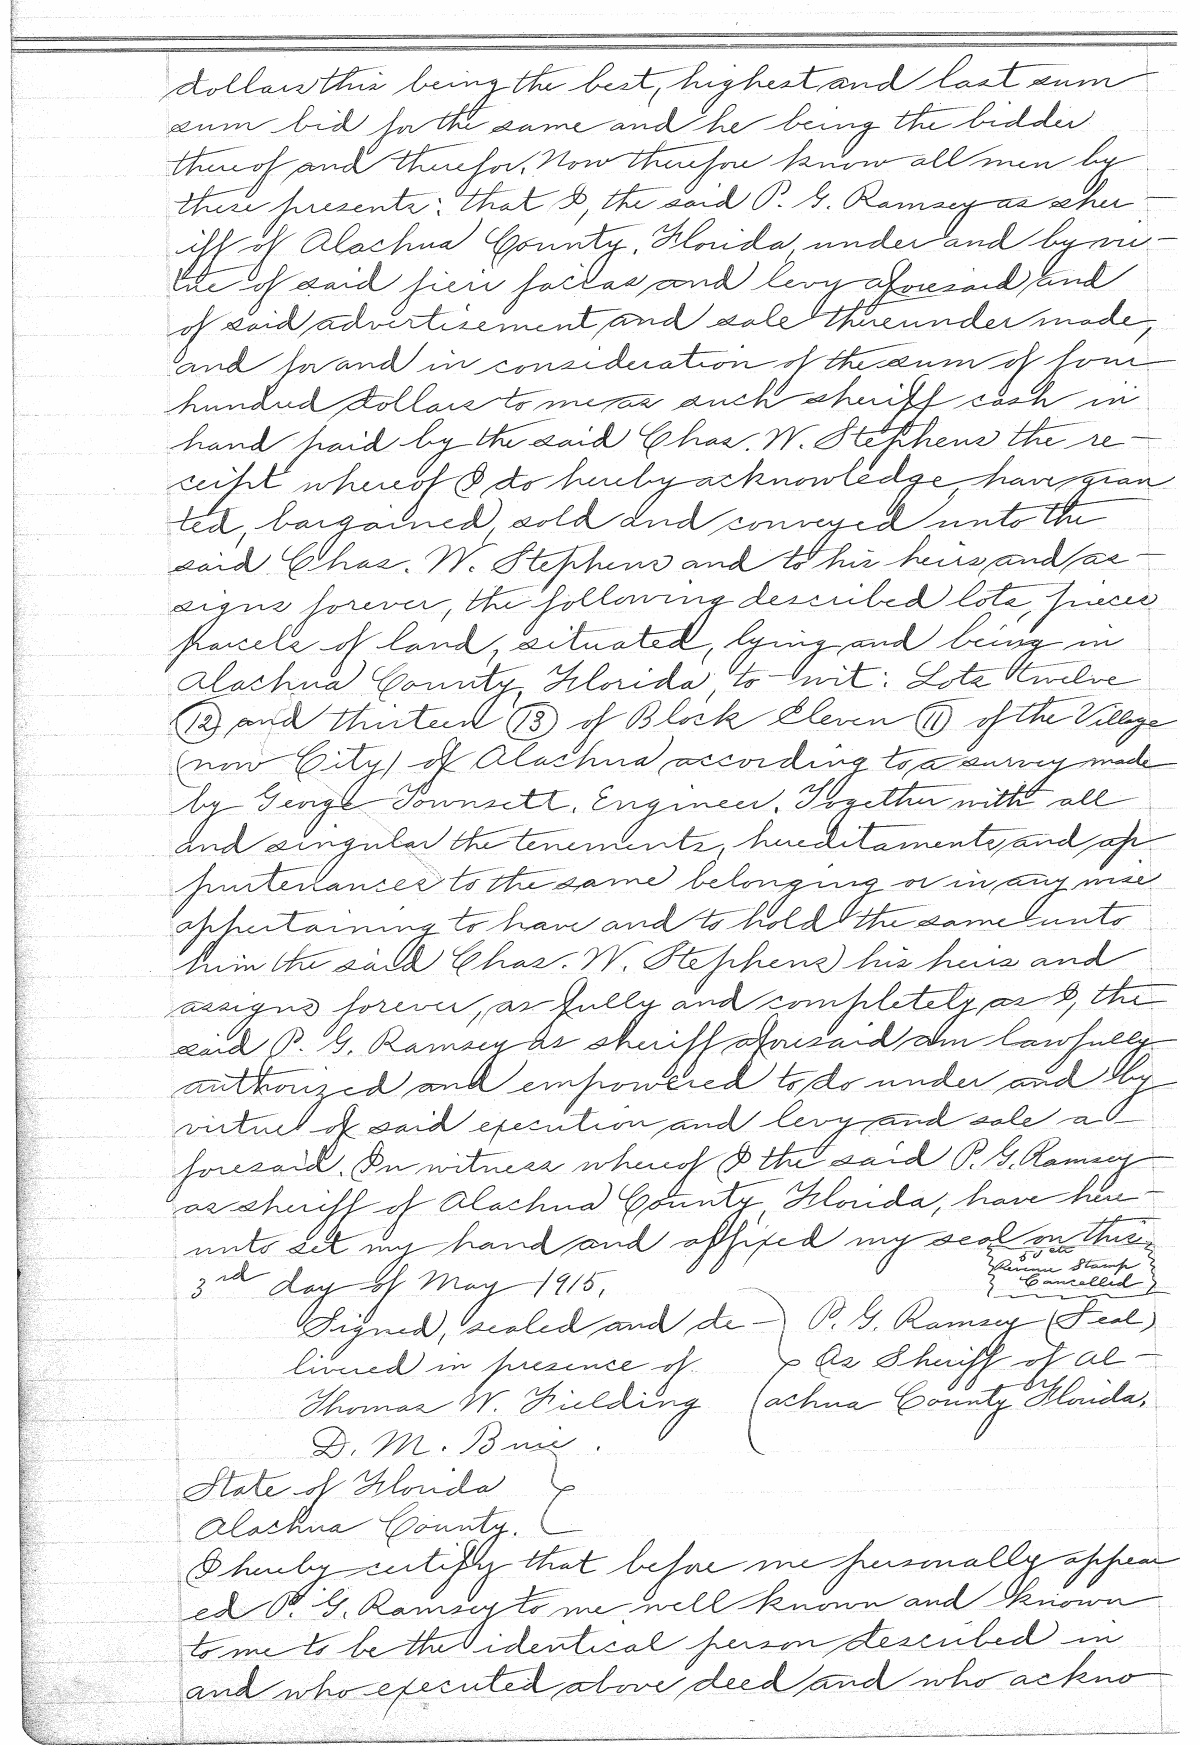 dollars this being the best, highest and last sum
sum bid for the same and he being the bidder
thereof and therefor. Now therefore know all men by
these presents: that I, the said P. G. Ramsey as sher-
iff of Alachua County, Florida, under and by vir-
tue of said fieri facias and levy aforesaid and
of said advertisement, and sale thereunder made,
and for and in consideration of the sum of four
hundred dollars to me as such sheriff cash in
hand paid by the said Chas. W. Stephens the re-
ceipt whereof I do hereby acknowledge, have gran
ted, bargained, sold and conveyed unto the
said Chas. W. Stephens and to his heirs and as-
signs forever, the following described lots, pieces
parcels of land, situated, lying and being in
Alachua County, Florida, to-wit: Lots twelve
(12) and thirteen (13) of Block Eleven (11) of the Village
(now City) of Alachua according to a survey made
by George Townsett, Engineer. Together with all
and singular the tenements, hereditaments and ap
purtenances to the same belonging or in any wise
appertaining to have and to hold the same unto
him the said Chas. W. Stephens his heirs and
assigns forever, as fully and completely as I, the
said P. G. Ramsey as sheriff aforesaid am lawfully
authorized and empowered to do under and by
virtue of said execution and levy and sale a-
foresaid. In witness whereof I the said P. G. Ramsey
as sheriff of Alachua County, Florida, have here-
unto set my hand and affixed my seal on this
3rd day of May 1915.
50 cts
Revenue Stamp
Cancelled
Signed, sealed and de-
livered in presence of
Thomas W. Fielding
D. M. Buie.
P. G. Ramsey (Seal)
As Sheriff of Al-
achua County Florida.
State of Florida
Alachua County.
I hereby certify that before me personally appear
ed P. G. Ramsey to me well known and known
to me to be the identical person described in
and who executed above deed and who ackno